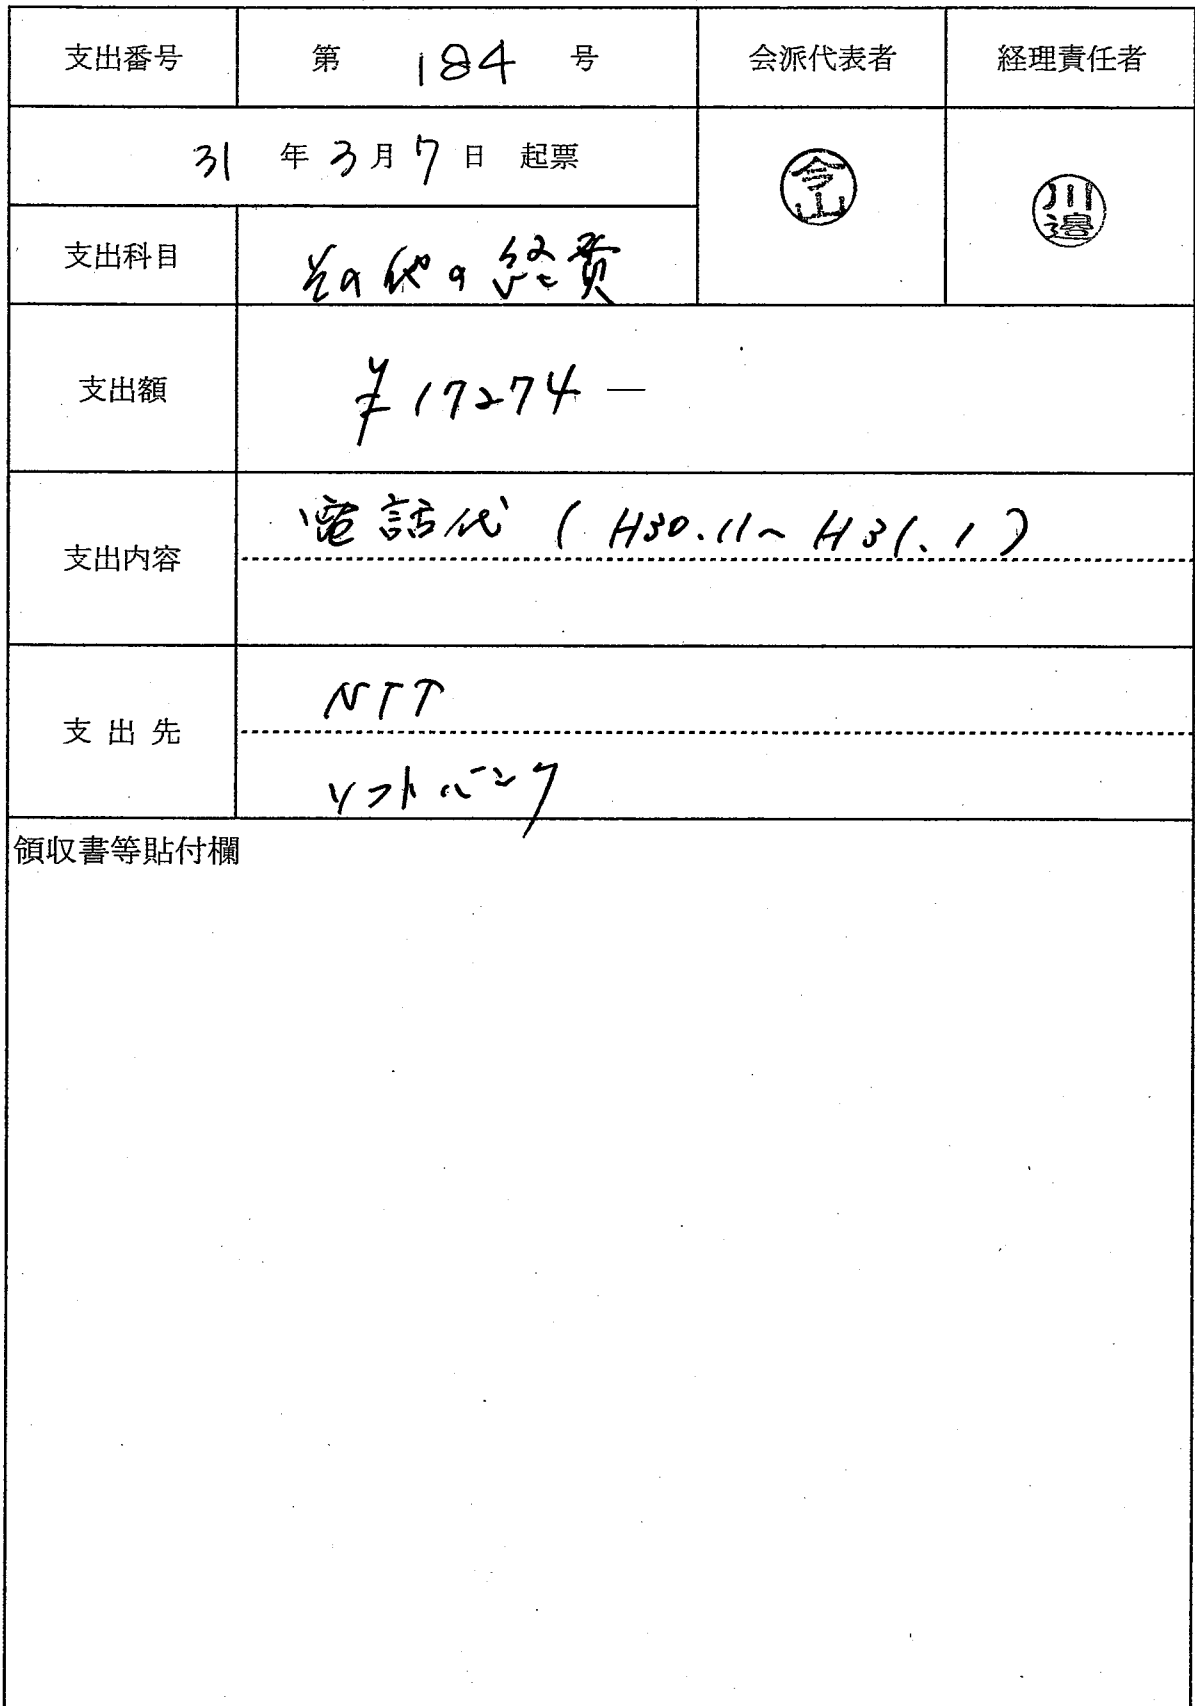 支出番号 第 184 号 会派代表者 経理責任者
31 年 3月 7 日 起票
今山
川邉
支出科目 その他の経費
支出額 ¥17274―
支出内容 電話代 (H30.11〜H31.1)
支出先 NTT
ソフトバンク
領収書等貼付欄